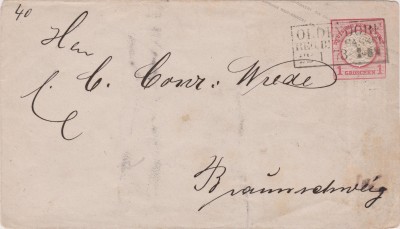 40
Herrn
C. Conr: Wrede
Braunschweig
OLDENDORF
1 GROSCHEN 1